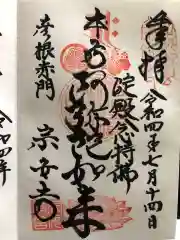 奉拝
令和四年七月十四日
本尊阿弥陀如来
彦根赤門
宗安寺
令和四年